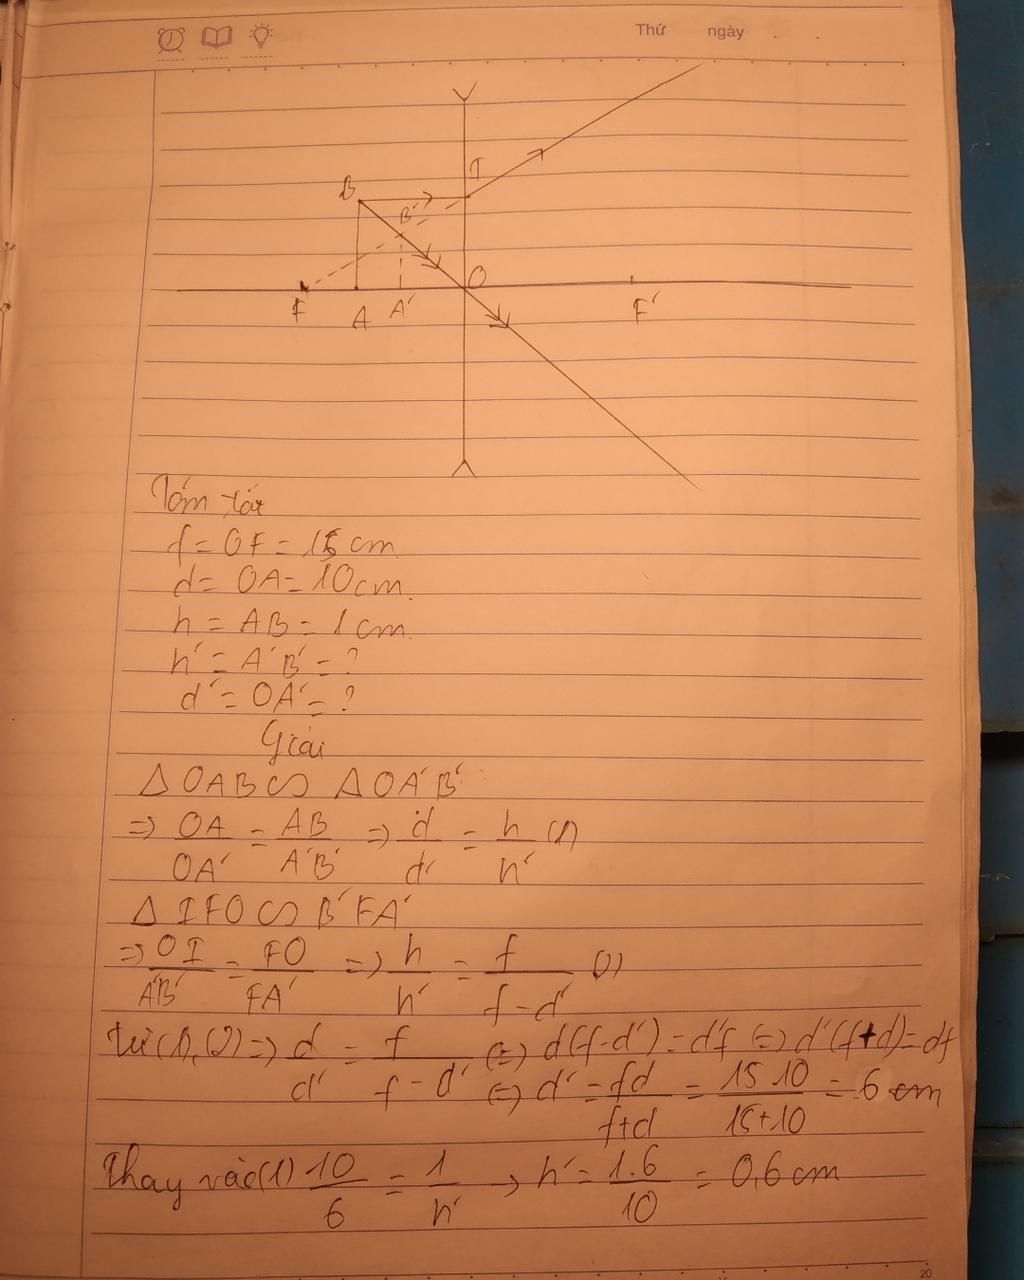 Thứ ngày . .
I
B
B'
O
F A A' F'
Tóm tắt
f = OF = 15 cm.
d = OA = 10 cm.
h = AB = 1 cm.
h' = A'B' = ?
d' = OA' = ?
Giải
Δ OAB ∽ Δ OA'B'
=> OA/OA' = AB/A'B' => d/d' = h/h' (1)
Δ IFO ∽ B'FA'
=> OI/A'B' = FO/FA' => h/h' = f/f-d' (2)
Từ (1), (2) => d/d' = f/f-d' (=) d(f-d') = d'f (=) d'(f+d) = df
(=) d' = fd/f+d = 15 10/15+10 = 6 cm
Thay vào (1) 10/6 = 1/h' → h' = 1.6/10 = 0,6 cm
20